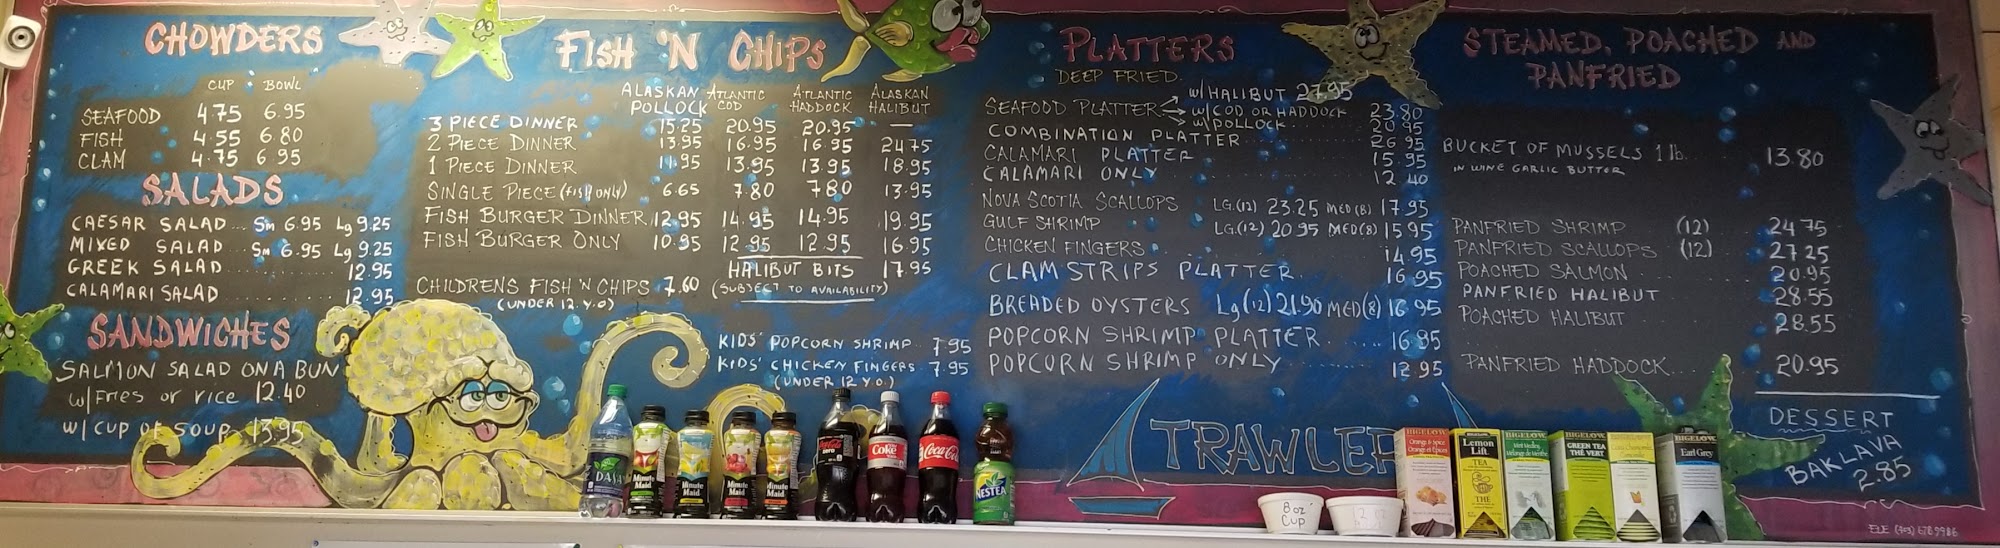 CHOWDERS
CUP BOWL
SEAFOOD 4.75 6.95
FISH 4.55 6.80
CLAM 4.75 6.95
SALADS
CAESAR SALAD... Sm 6.95 Lg 9.25
MIXED SALAD Sm 6.95 Lg 9.25
GREEK SALAD 12.95
CALAMARI SALAD 12.95
SANDWICHES
SALMON SALAD ON A BUN
w/ Fries or rice 12.40
w/ CUP OF SOUP 13.95
FISH 'N CHIPS
ALASKAN POLLOCK ATLANTIC COD ATLANTIC HADDOCK ALASKAN HALIBUT
3 PIECE DINNER 15.25 20.95 20.95 —
2 PIECE DINNER 13.95 16.95 16.95 24.75
1 PIECE DINNER 11.95 13.95 13.95 18.95
SINGLE PIECE (FISH ONLY) 6.65 7.80 7.80 13.95
FISH BURGER DINNER 12.95 14.95 14.95 19.95
FISH BURGER ONLY 10.95 12.95 12.95 16.95
HALIBUT BITS 17.95
(SUBJECT TO AVAILABILITY)
CHILDRENS FISH 'N CHIPS 7.60
(UNDER 12. Y.O)
KIDS' POPCORN SHRIMP.. 7.95
KIDS' CHICKEN FINGERS. 7.95
(UNDER 12 Y.O.)
PLATTERS
DEEP FRIED
w/ HALIBUT 27.95
SEAFOOD PLATTER w/ COD OR HADDOCK 23.80
w/ POLLOCK 20.95
COMBINATION PLATTER 26.95
CALAMARI PLATTER 15.95
CALAMARI ONLY 12.40
NOVA SCOTIA SCALLOPS LG.(12) 23.25 MED(8) 17.95
GULF SHRIMP LG.(12) 20.95 MED(8) 15.95
CHICKEN FINGERS 14.95
CLAM STRIPS PLATTER 16.95
BREADED OYSTERS Lg(12) 21.90 MED(8) 16.95
POPCORN SHRIMP PLATTER 16.95
POPCORN SHRIMP ONLY 12.95
TRAWLER
STEAMED, POACHED AND
PANFRIED
BUCKET OF MUSSELS 1 lb. 13.80
IN WINE GARLIC BUTTER
PANFRIED SHRIMP (12) 24.75
PANFRIED SCALLOPS (12) 27.25
POACHED SALMON 20.95
PANFRIED HALIBUT 28.55
POACHED HALIBUT 28.55
PANFRIED HADDOCK... 20.95
DESSERT
BAKLAVA
2.85
DASA
Minute Maid
Minute Maid
Minute Maid
Minute Maid
Coca-Cola zero
Diet Coke
Coca-Cola
NESTEA
8 oz
Cup
12 oz
BIGELOW
Orange & Spice
Orange et Épices
BIGELOW
Lemon Lift
TEA
THÉ
BIGELOW
Mint Medley
Mélange de Menthe
BIGELOW
GREEN TEA
THÉ VERT
BIGELOW
Earl Grey